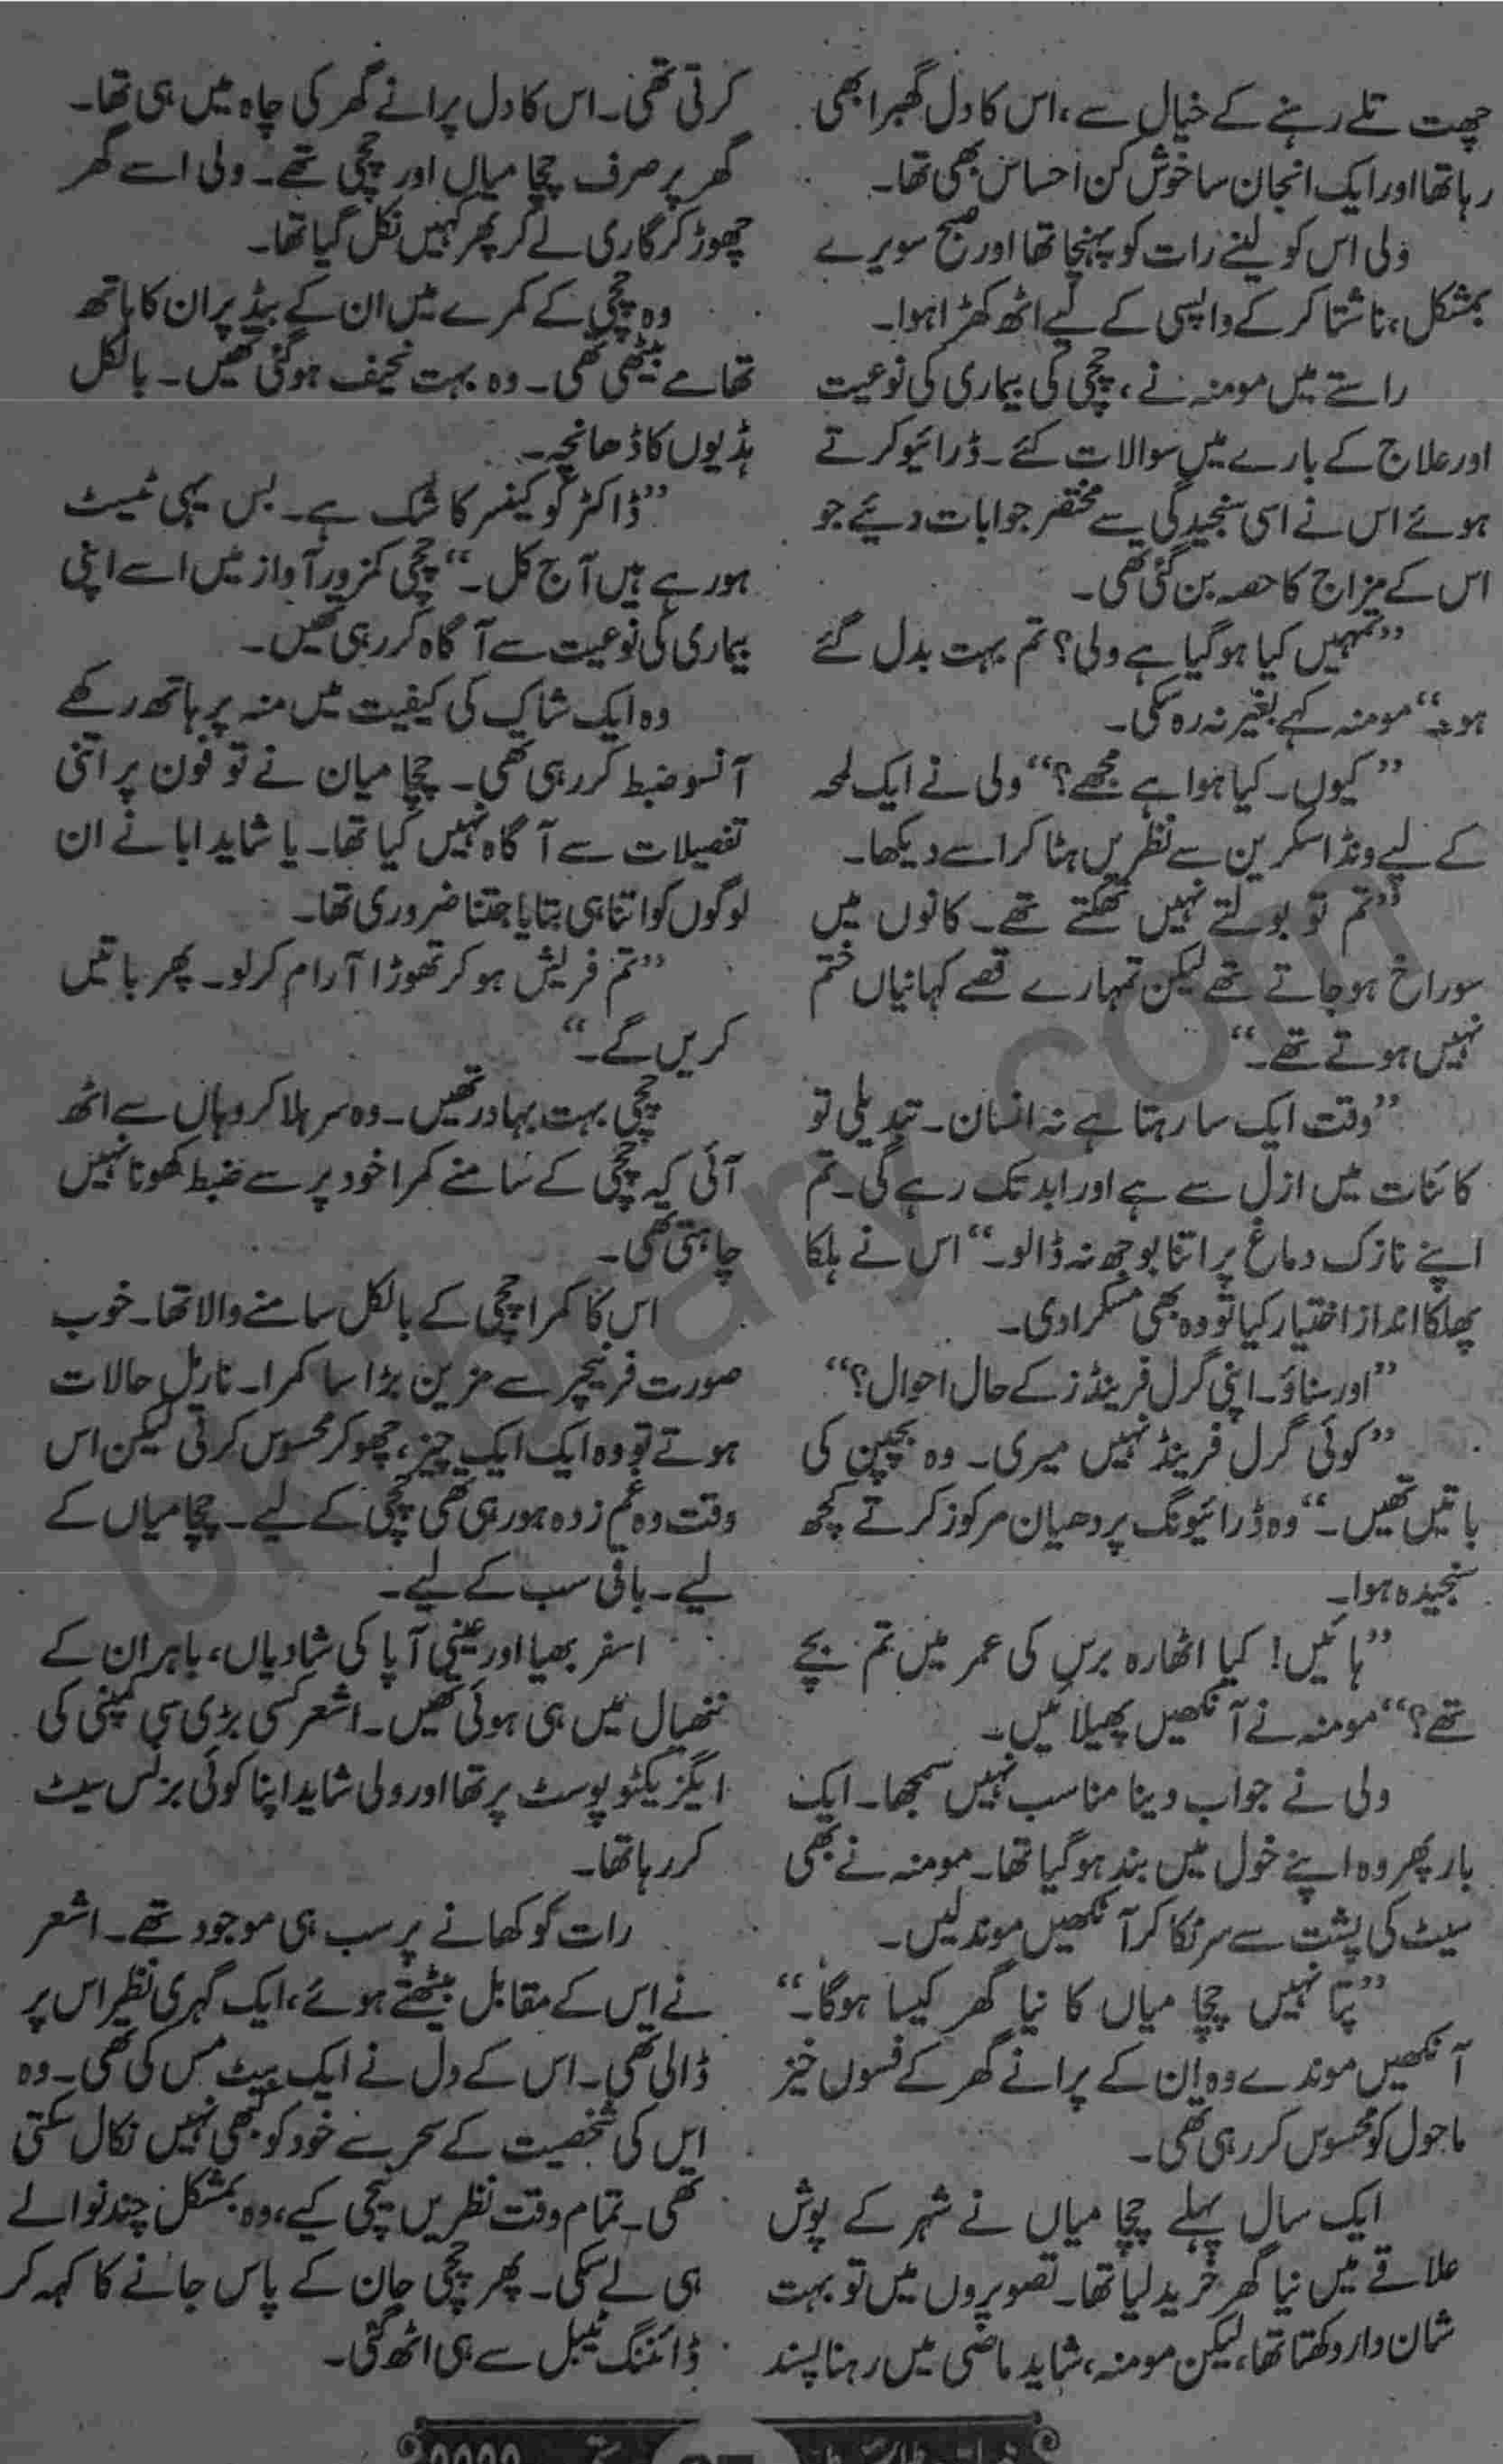 چھت تلے رہنے کے خیال سے، اس کا دل گھبرا بھی
رہا تھا اور ایک انجان سا خوش کن احساس بھی تھا۔
ولی اس کو لینے رات کو پہنچا تھا اور صبح سویرے
بمشکل، ناشتا کر کے واپسی کے لیے اٹھ کھڑا ہوا۔
راستے میں مومنہ نے، چچی کی بیماری کی نوعیت
اور علاج کے بارے میں سوالات کئے۔ ڈرائیو کرتے
ہوئے اس نے اسی سنجیدگی سے مختصر جوابات دیئے جو
اس کے مزاج کا حصہ بن گئی تھی۔
”تمہیں کیا ہو گیا ہے ولی؟ تم بہت بدل گئے
ہو۔“ مومنہ کہے بغیر نہ رہ سکی۔
”کیوں۔ کیا ہوا ہے مجھے؟“ ولی نے ایک لمحہ
کے لیے ونڈ اسکرین سے نظریں ہٹا کر اسے دیکھا۔
”تم تو بولتے نہیں تھکتے تھے۔ کانوں میں
سوراخ ہو جاتے تھے لیکن تمہارے قصے کہانیاں ختم
نہیں ہوتے تھے۔“
”وقت ایک سا رہتا ہے نہ انسان۔ تبدیلی تو
کائنات میں ازل سے ہے اور ابد تک رہے گی۔ تم
اپنے نازک دماغ پر اتنا بوجھ نہ ڈالو۔“ اس نے ہلکا
پھلکا انداز اختیار کیا تو وہ بھی مسکرا دی۔
”اور سناؤ۔ اپنی گرل فرینڈز کے حال احوال؟“
”کوئی گرل فرینڈ نہیں میری۔ وہ بچپن کی
باتیں تھیں۔“ وہ ڈرائیونگ پر دھیان مرکوز کرتے کچھ
سنجیدہ ہوا۔
”ہائیں! کیا اٹھارہ برس کی عمر میں تم بچے
تھے؟“ مومنہ نے آنکھیں پھیلائیں۔
ولی نے جواب دینا مناسب نہیں سمجھا۔ ایک
بار پھر وہ اپنے خول میں بند ہو گیا تھا۔ مومنہ نے بھی
سیٹ کی پشت سے سر ٹکا کر آنکھیں موند لیں۔
”پتا نہیں چچا میاں کا نیا گھر کیسا ہوگا۔“
آنکھیں موندے وہ ان کے پرانے گھر کے فسوں خیز
ماحول کو محسوس کر رہی تھی۔
ایک سال پہلے چچا میاں نے شہر کے پوش
علاقے میں نیا گھر خرید لیا تھا۔ تصویروں میں تو بہت
شان دار دکھتا تھا، لیکن مومنہ، شاید ماضی میں رہنا پسند
کرتی تھی۔ اس کا دل پرانے گھر کی چاہ میں ہی تھا۔
گھر پر صرف چچا میاں اور چچی تھے۔ ولی اسے گھر
چھوڑ کر گاری لے کر پھر کہیں نکل گیا تھا۔
وہ چچی کے کمرے میں ان کے بیڈ پر ان کا ہاتھ
تھامے بیٹھی تھی۔ وہ بہت نحیف ہو گئی تھیں۔ بالکل
ہڈیوں کا ڈھانچہ۔
”ڈاکٹر کو کینسر کا شک ہے۔ بس یہی ٹیسٹ
ہو رہے ہیں آج کل۔“ چچی کمزور آواز میں اسے اپنی
بیماری کی نوعیت سے آگاہ کر رہی تھیں۔
وہ ایک شاک کی کیفیت میں منہ پر ہاتھ رکھے
آنسو ضبط کر رہی تھی۔ چچا میان نے تو فون پر اتنی
تفصیلات سے آگاہ نہیں کیا تھا۔ یا شاید ابا نے ان
لوگوں کو اتنا ہی بتایا جتنا ضروری تھا۔
”تم فریش ہو کر تھوڑا آرام کر لو۔ پھر باتیں
کریں گے۔“
چچی بہت بہادر تھیں۔ وہ سر ہلا کر وہاں سے اٹھ
آئی کہ چچی کے سامنے کمرا خود پر سے ضبط کھونا نہیں
چاہتی تھی۔
اس کا کمرا چچی کے بالکل سامنے والا تھا۔ خوب
صورت فرنیچر سے مزین بڑا سا کمرا۔ نارمل حالات
ہوتے تو وہ ایک ایک چیز، چھو کر محسوس کرتی لیکن اس
وقت وہ غم زدہ ہو رہی تھی چچی کے لیے۔ چچا میاں کے
لیے۔ باقی سب کے لیے۔
اسفر بھیا اور عینی آپا کی شادیاں، باہر ان کے
ننھیال میں ہی ہوئی تھیں۔ اشعر کسی بڑی سی کمپنی کی
ایگزیکٹو پوسٹ پر تھا اور ولی شاید اپنا کوئی بزنس سیٹ
کر رہا تھا۔
رات کو کھانے پر سب ہی موجود تھے۔ اشعر
نے اس کے مقابل بیٹھتے ہوئے، ایک گہری نظر اس پر
ڈالی تھی۔ اس کے دل نے ایک بیٹ مس کی تھی۔ وہ
اس کی شخصیت کے سحر سے خود کو کبھی نہیں نکال سکتی
تھی۔ تمام وقت نظریں نیچی کیے، وہ بمشکل چند نوالے
ہی لے سکی۔ پھر چچی جان کے پاس جانے کا کہہ کر
ڈائننگ ٹیبل سے ہی اٹھ گئی۔